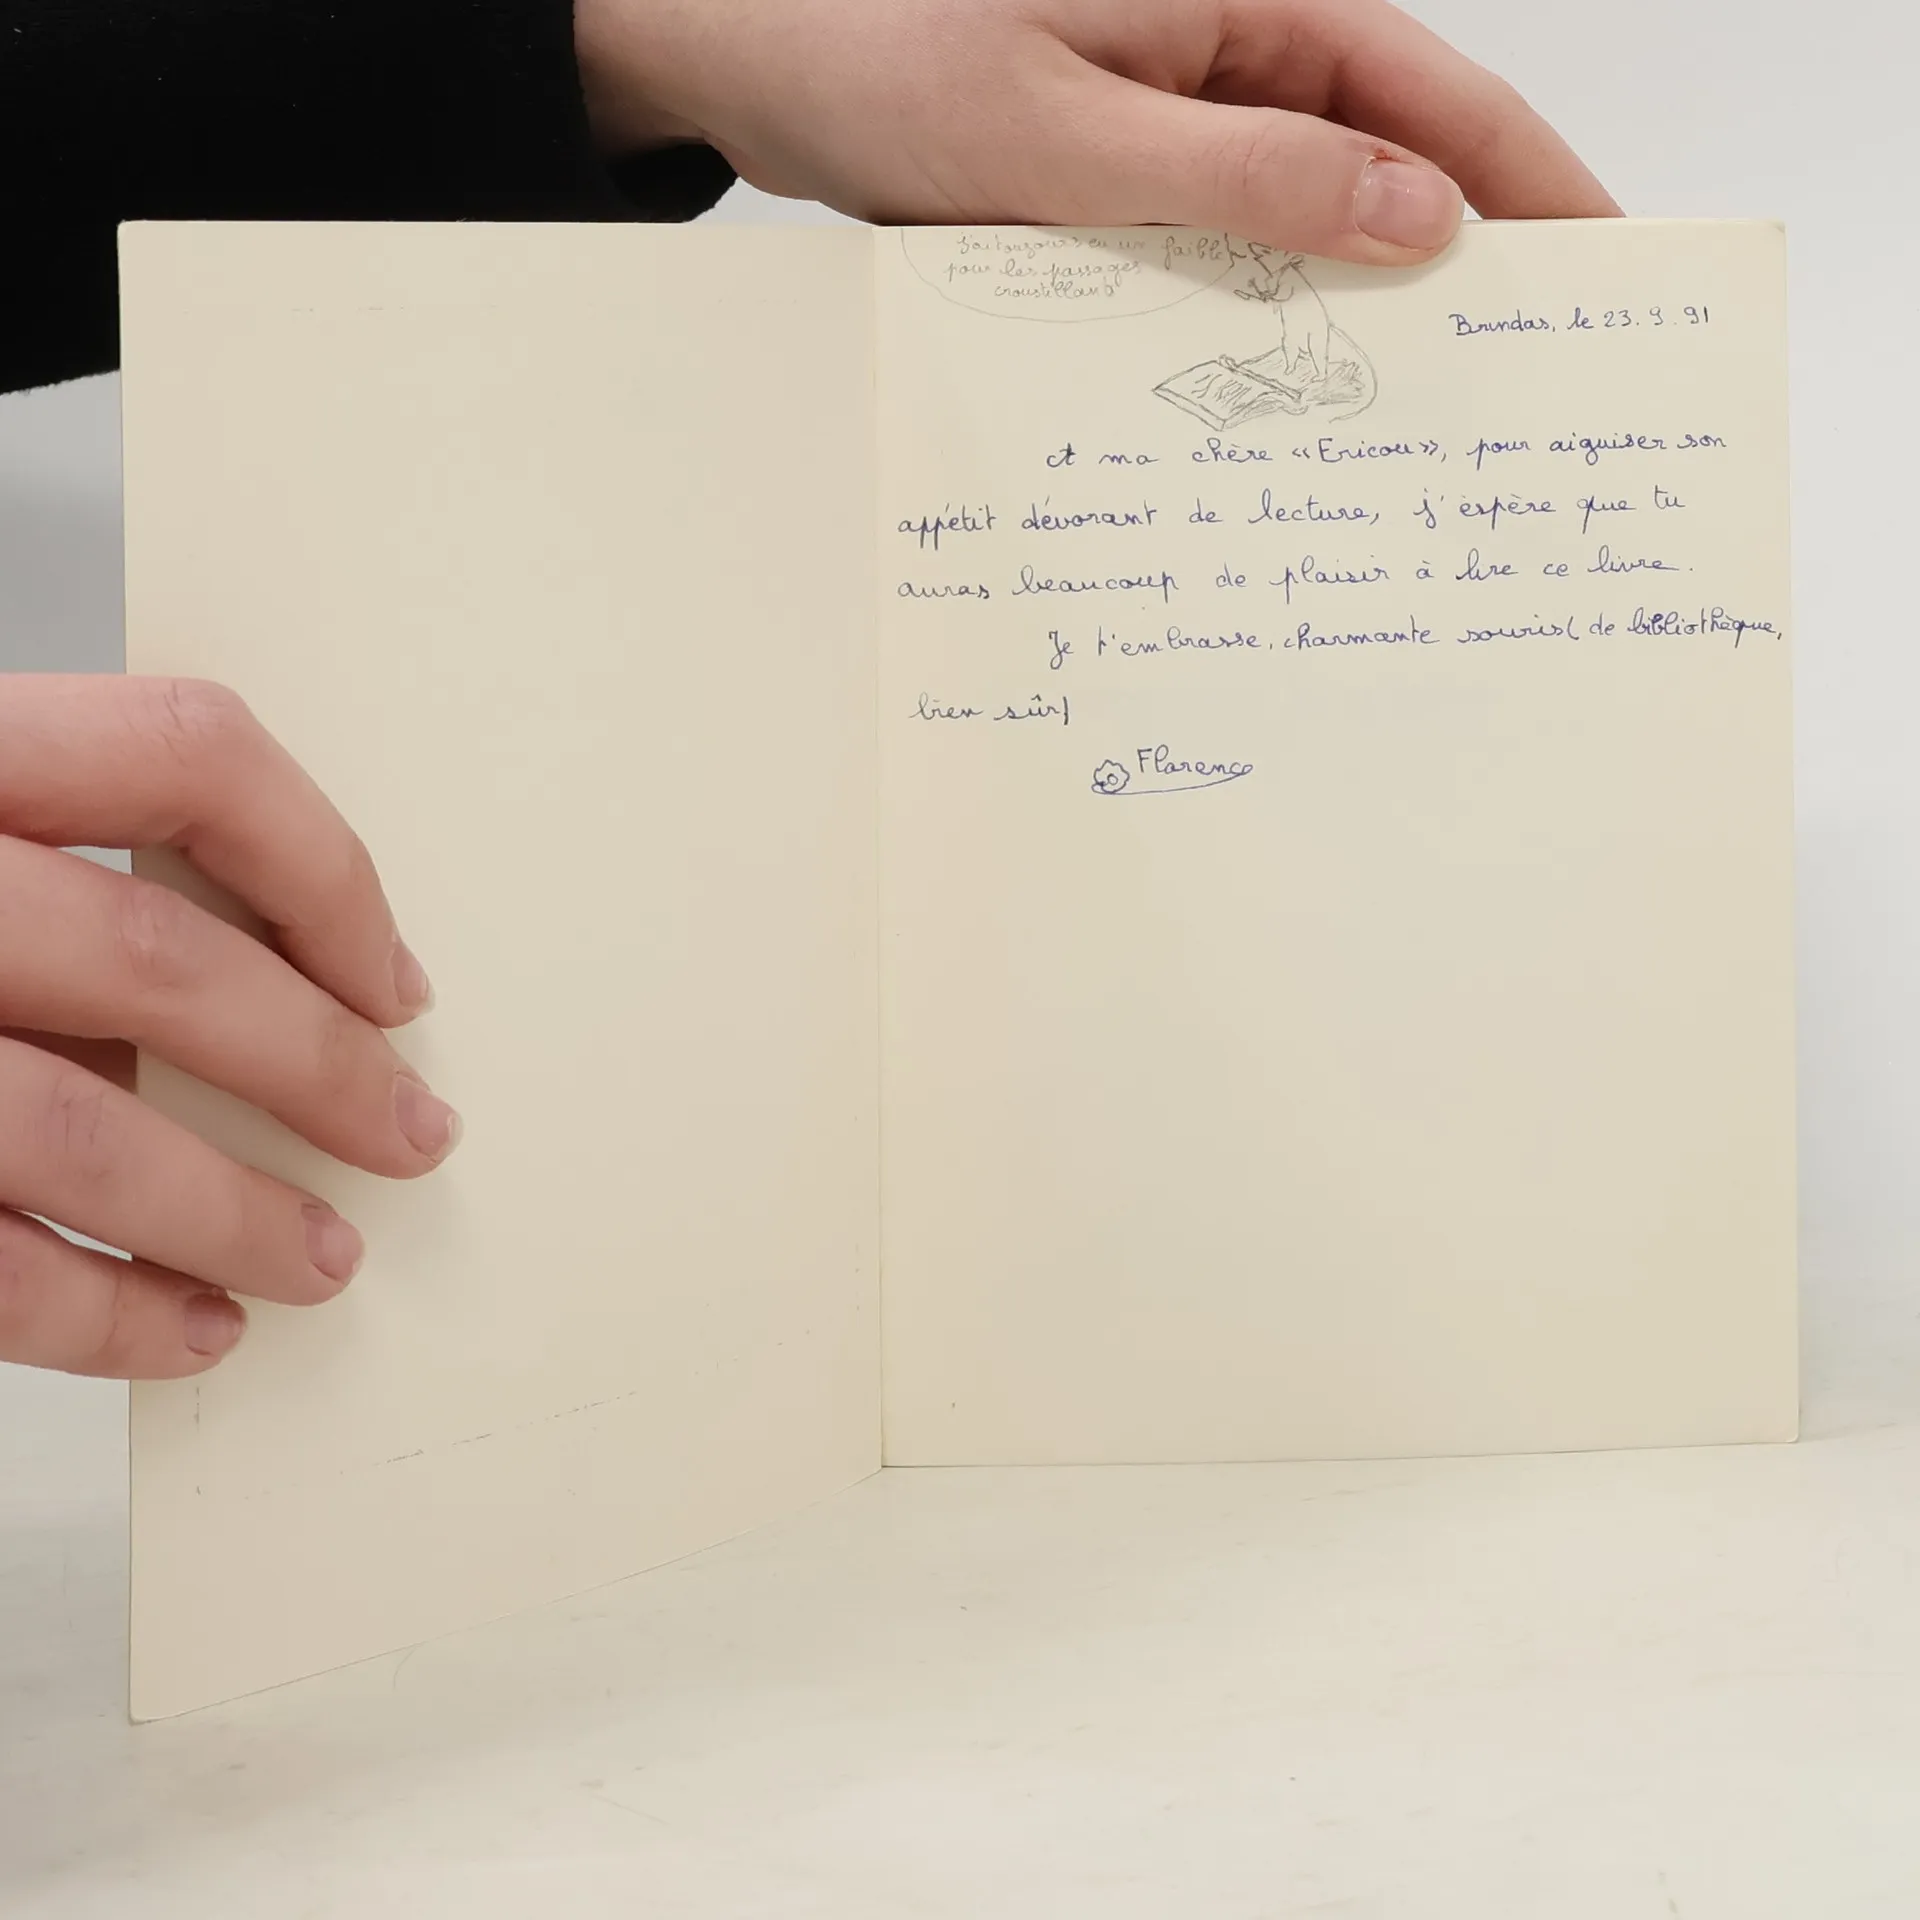 J'ai toujours eu un faible
pour les passages
croustillants
Brindas, le 23.9.91
A ma chère «Ericou», pour aiguiser son
appétit dévorant de lecture, j'éspère que tu
auras beaucoup de plaisir à lire ce livre.
Je t'embrasse, charmante souris( de bibliothèque,
bien sûr)
Florence